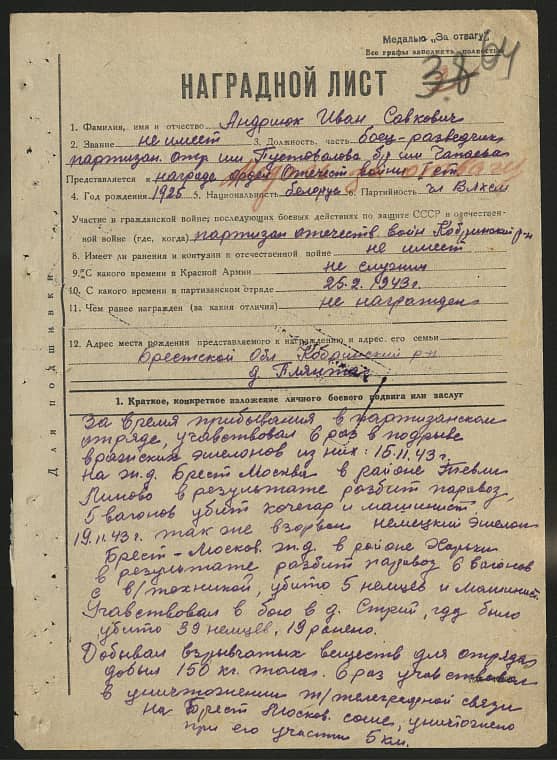 Медалью „За отвагу"
Все графы заполнять полностью
64
38
НАГРАДНОЙ ЛИСТ
1. Фамилия, имя и отчество Андриюк Иван Савкович
2. Звание не имеет 3. Должность, часть боец-разведчик
партизан. отр им Пустовалова бр им Чапаева
Представляется к награде Орден Отечест войны I ст.
4. Год рождения 1925 5. Национальность белорус 6. Партийность чл ВЛКСМ
Участие в гражданской войне; последующих боевых действиях по защите СССР и отечествен-
ной войне (где, когда) партизан отечеств войн Кобринский р-н
8. Имеет ли ранения и контузии в отечественной войне не имеет
9. С какого времени в Красной Армии не служил
10. С какого времени в партизанском отряде 25.2.1943 г.
11. Чем ранее награжден (за какия отличия) не награжден
12. Адрес места рождения представляемого к награждению и адрес его семьи
Брестской Обл Кобринский р-н
д
Для подшивки
1. Краткое, конкретное изложение личного боевого подвига или заслуг
За время прибывания в партизанском
отряде, учавствовал 6 раз в подрыве
вражеских эшелонов из них: 15.11.43 г.
на ж.д. Брест Москва в районе Тевли
Линово в результате разбит паровоз,
5 вагонов убит кочегар и машинист.
19.11.43 г. так же взорван немецкий эшелон
Брест-Москов. ж.д. в районе
в результате разбит паровоз 6 вагонов
с в/техникой, убито 5 немцев и машинист.
Учавствовал в бою в д. Стрий, где было
убито 39 немцев, 19 ранено.
Добывал взрывчатых веществ для отряда
добыл 150 кг. толая. 6 раз учавствовал
в уничтожении т/телеграфной связи
на Брест Москов. шоссе, уничтожено
при его участии 5 км.